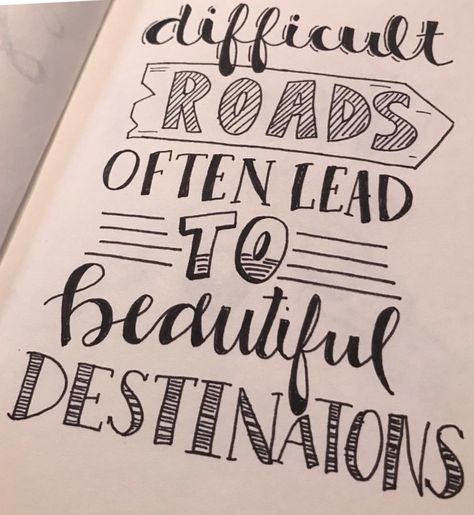 difficult
ROADS
OFTEN LEAD
TO
beautiful
DESTINATONS